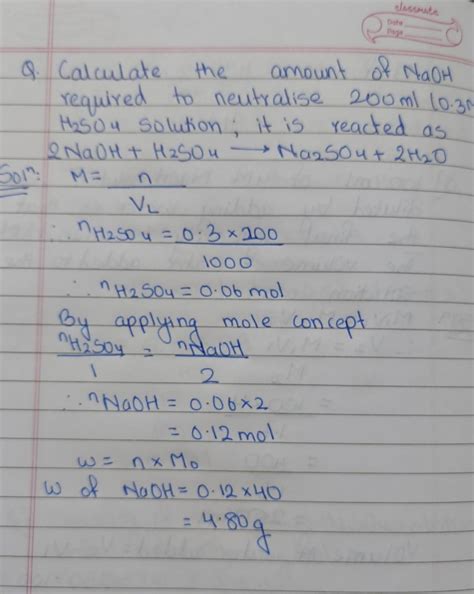 classmate
Date
Page
Q. Calculate the amount of NaOH
required to neutralise 200ml (0.3
H2SO4 solution; it is reacted as
2NaOH + H2SO4 → Na2SO4 + 2H2O
Solⁿ: M = n
VL
∴ nH2SO4 = 0.3 × 200
1000
∴ nH2SO4 = 0.06 mol
By applying mole concept
nH2SO4 = nNaOH
1 2
∴ nNaOH = 0.06 × 2
= 0.12 mol
w = n × Mo
W of NaOH = 0.12 × 40
= 4.80g